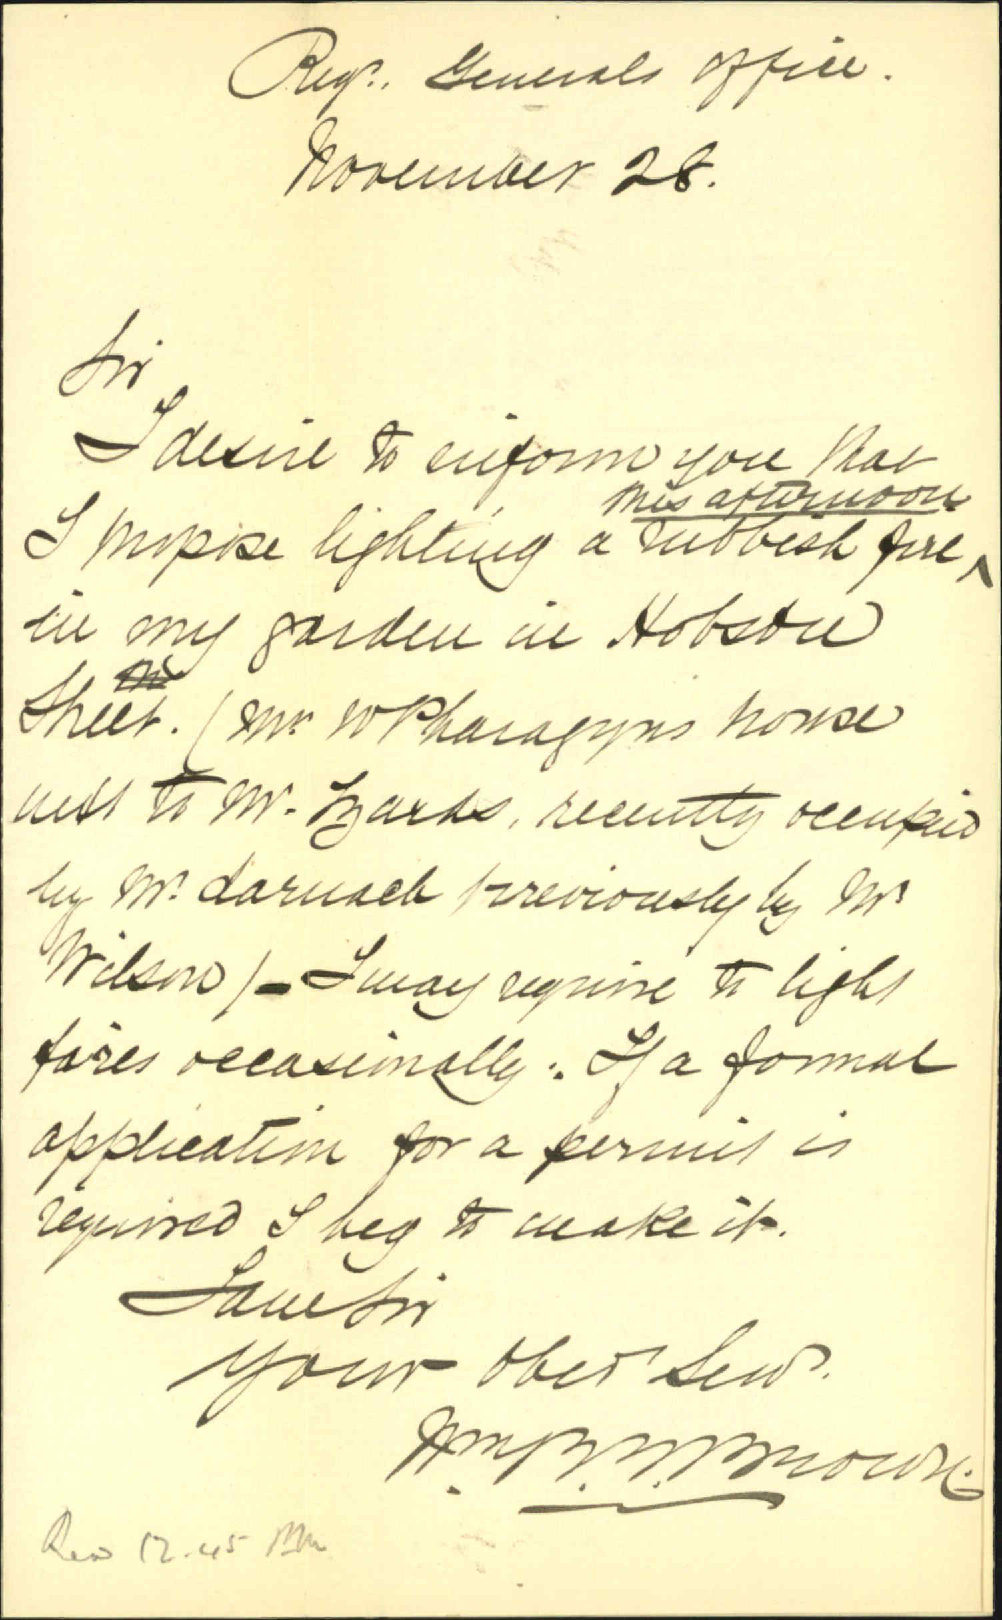 Regr. Generals Office.
November 28.
Sir
I desire to inform you that
this afternoon
I propose lighting a rubbish fire
in my garden in Hobson
Street. (Mr W Pharazyns house
next to Mr. Izards, recently occupied
by Mr. Larnach previously by Mr
Wilson) - I may require to light
fires occasionally: If a formal
application for a permit is
required I beg to make it.
I am Sir
Your Obedt Servt.
Wm R. E. Brown.
Rec 12.45 PM